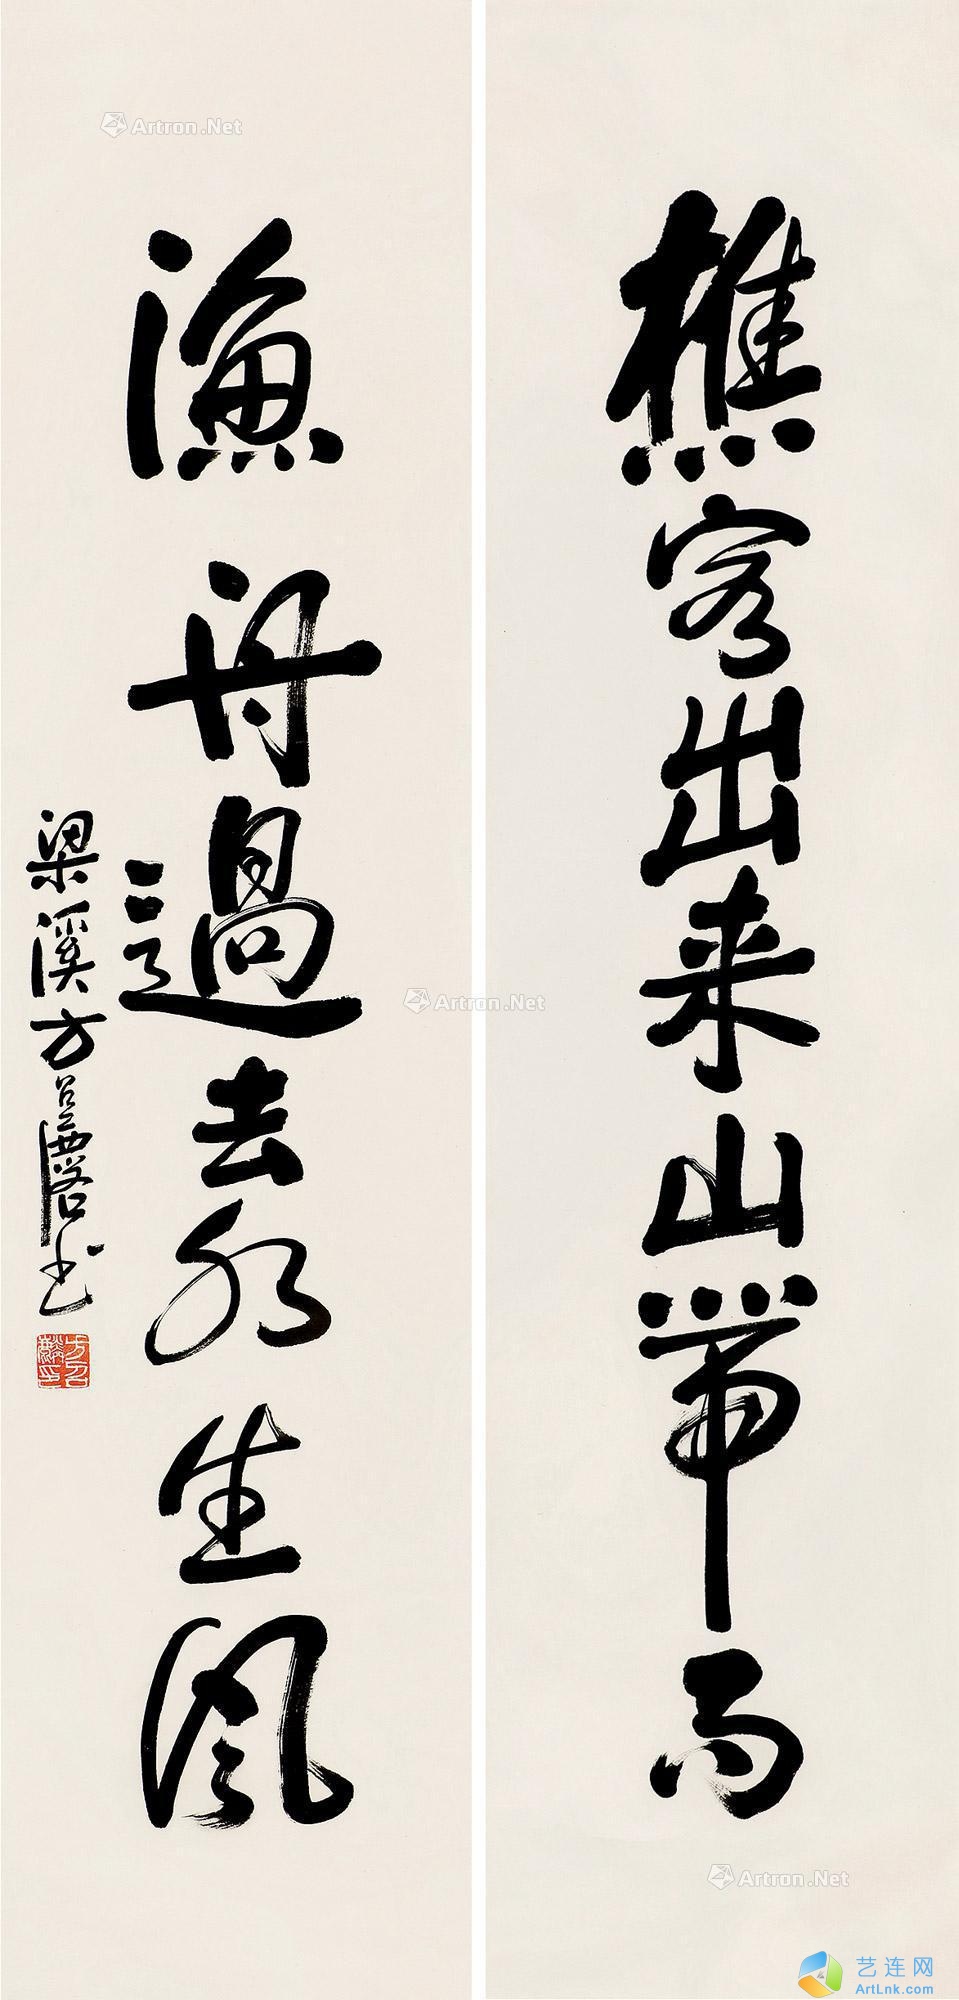 樵客出来山带雨
漁舟過去水生風
梁溪方召麐书
Artron.Net
Artron.Net
Artron.Net
艺连网
ArtLnk.com